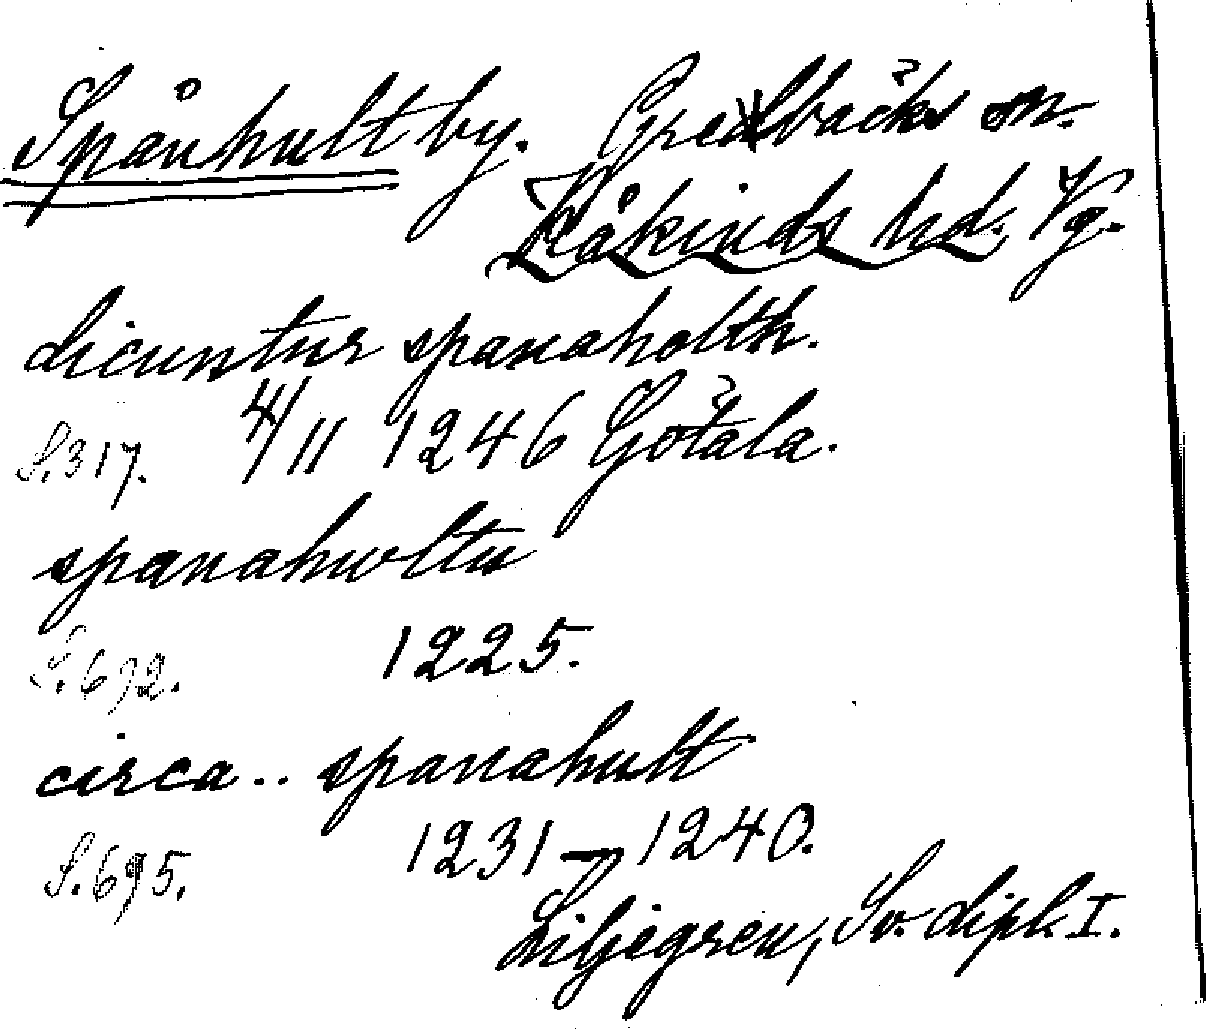 Spånhult by. Gredbäcks sn.
Kåkinds hd. Vg.
dicuntur spanaholth.
S. 317. 4/11 1246 Götala.
spanahwltu
S. 692. 1225.
circa .. spanahult
S. 695. 1231 – 1240.
Liljegren, Sv. dipl. I.